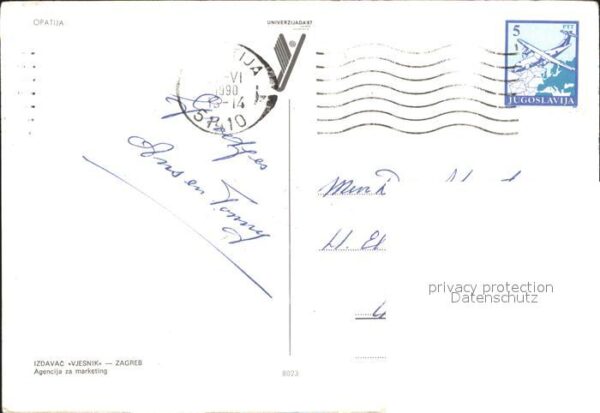 OPATIJA
UNIVERZIJADA 87
5 PTT
JUGOSLAVIJA
IJA
-VI
1990
-14
51410
Groetjes
Ans en Tonny
privacy protection
Datenschutz
IZDAVAČ »VJESNIK« — ZAGREB
Agencija za marketing
8023